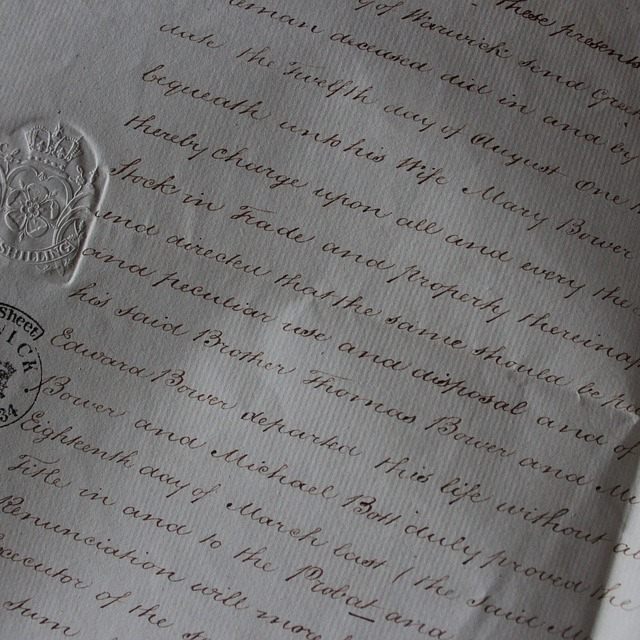 of Warwick send Greeting
deceased did in and by
the Twelfth day of August One
bequeath unto his Wife Mary Bower
thereby charge upon all and every the
Stock in Trade and property therein
and directed that the same should be
and peculiar use and disposal and
his said Brother Thomas Bower and
Edward Bower departed this life without
Bower and Michael Bott duly proved the
Eighteenth day of March last (the said
Title in and to the Probat and
Renunciation will more
of the
SHILLING
WICK